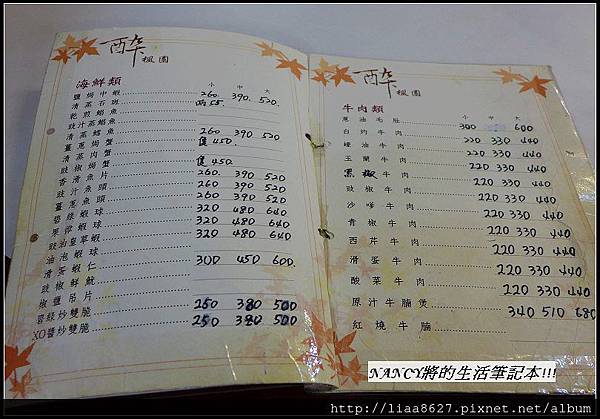 醉
楓園
海鮮類
小 中 大
鹽焗中蝦 260. 390. 520.
清蒸石斑
乾煎鯧魚
豉汁蒸鯧魚
清蒸鱈魚 260 390 520
薑蔥焗蟹 隻450.
清蒸肉蟹
豉椒焗蟹 隻450.
香滑魚片 260. 390 520
豉汁魚頭 260 390 520
薑蔥魚頭 260 390 520
碧綠蝦球 320 480 640
果律蝦球 320 480 640
豉油皇草蝦 320 480 640
油泡蝦球
滑蛋蝦仁 300 450 600.
豉椒鮮魷
椒鹽吊片
碧綠炒雙脆 250 380 500
XO醬炒雙脆 250 380 500
醉
楓園
牛肉類
小 中 大
蔥油毛肚 300 600
白灼牛肉 220 330 440
蠔油牛肉 220 330 440
玉蘭牛肉 220 330 440
黑椒牛肉 220 330 440
豉椒牛肉 220 330 440
沙嗲牛肉 220 330 440
青椒牛肉 220 330 440
西芹牛肉 220 330 440
滑蛋牛肉 220 330 440
酸菜牛肉 220 330 440
原汁牛腩煲 340 510 680
紅燒牛腩
NANCY將的生活筆記本!!!
http://liaa8627.pixnet.net/album